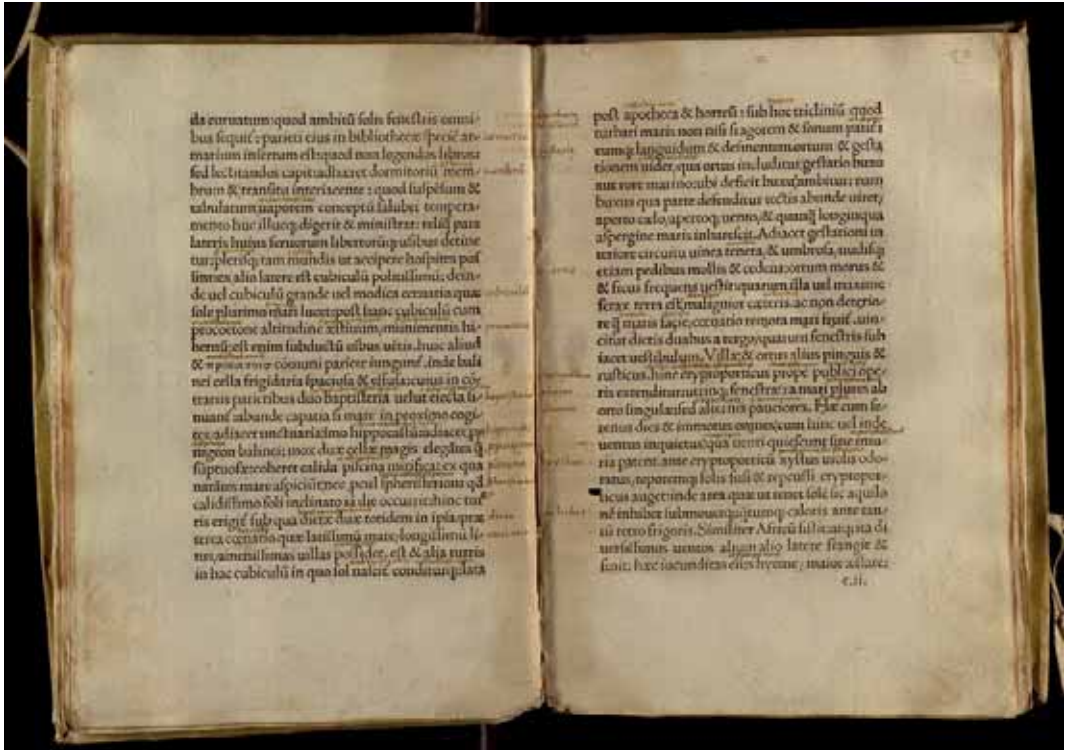 da curuatum: quod ambitũ solis fenestris omni-
bus sequiť: parieti eius in bibliothecæ speciẽ ar-
marium insertum est: quod non legendos libros:
sed lectitandos capit: adhæret dormitoriũ mem
brum & transitu interiacente: quod suspẽsum &
tabulatum uaporem conceptũ salubri tempera-
mento huc illucq; digerit & ministrat: reliq̃ pars
lateris huius seruorum libertorũq; usibus detine
tur: plerisq; tam mundis ut accipere hospites pos
sint: ex alio latere est cubiculũ politissimũ: dein-
de uel cubiculũ grande uel modica cœnatio quæ
sole plurimo mari lucet: post hanc cubiculũ cum
procœtone altitudine æstiuum, munimentis hi-
bernũ: est enim subductũ oibus uẽtis. huic aliud
& cõmuni pariete iunguní. inde bali
nei cella frigidaria spaciosa & effusa: cuius in cõ
trariis parietibus duo baptisteria uelut eiecta si-
nuant abunde capatia si mare in proximo cogi-
tes: adiacet unctuariũ: hippocastũ: adiacet
nigeon balinei; mox duæ cellæ magis elegãtes q̃
sũptuosæ: cohæret calida piscina mirifica: ex qua
natãtes mare aspiciũt: nec pcul spheristeriũ qđ
calidissimo soli inclinato iã die occurrit: hinc tur
ris erigiť sub qua dietæ duæ totidem in ipsa: præ
terea cœnatio quæ latissimũ mare: longissimũ li-
tus, amœnissimas uillas possidet. est & alia turris
in hac cubiculũ in quo sol nascit conditurq; lata
post apotheca & horreũ: sub hoc tricliniũ quod
turbati maris non nisi fragorem & sonum patiť:
eumq; languidum & desinentem: ortum & gesta
tionem uidet, qua ortus includitur: gestatio buxo
aut rore marino: ubi deficit buxus ambitur: nam
buxus qua parte defenditur tectis abunde uiret,
aperto cælo, apertoq; uento, & quanq̃ longinqua
aspergine maris inharescit. Adiacet gestationi in
teriore circuitu uinea tenera, & umbrosa, nudisq;
etiam pedibus mollis & cedens: ortum morus &
& ficus frequens uestit: quarum illa uel maxime
ferax terra est, malignior cæteris. ac non deterio-
re q̃ maris facie, cœnatio remota mari fruiť. cin-
citur dietis duabus a tergo, quarum fenestris sub
iacet uestibulum. Villæ & ortus alius pinguis &
rusticus. hinc cryptoporticus prope publici ope-
ris extenditur: utrinq; fenestræ: a mari plures ab
orto singulæ: sed alternis pauciores. Hæ cum se-
renus dies & immotus omnes; cum hinc uel inde
uentus inquietus: qua uenti quiescunt sine iniu-
ria patent. ante cryptoporticũ xystus uiolis odo-
ratus, teporemq; solis fusi & repcussi cryptopor-
ticus auget: inde area quæ ut tenet solẽ sic aquilo
nẽ inhibet submouetq;: q̃tumq; caloris ante tan-
tũ retro frigoris. Similiter Africũ sistit: atq; ita di
uersissimos uentos alium alio latere frangit &
finit: hæc iucunditas eius hyeme; maior æstate:
c.ii.